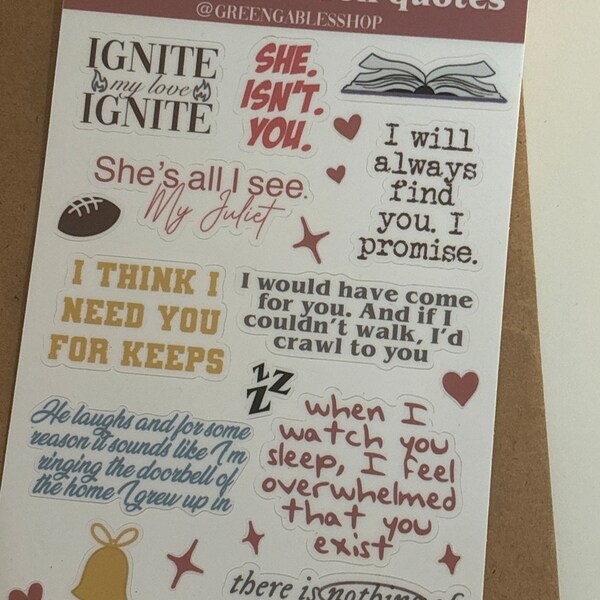 quotes
@GREENGABLESSHOP
IGNITE
my love
IGNITE
SHE.
ISN'T.
YOU.
I will
always
find
you. I
promise.
She's all I see.
My Juliet
I THINK I
NEED YOU
FOR KEEPS
I would have come
for you. And if I
couldn't walk, I'd
crawl to you
z z
Z
He laughs and for some
reason it sounds like I'm
ringing the doorbell of
the home I grew up in
when I
watch you
sleep, I feel
overwhelmed
that you
exist
there is nothing of